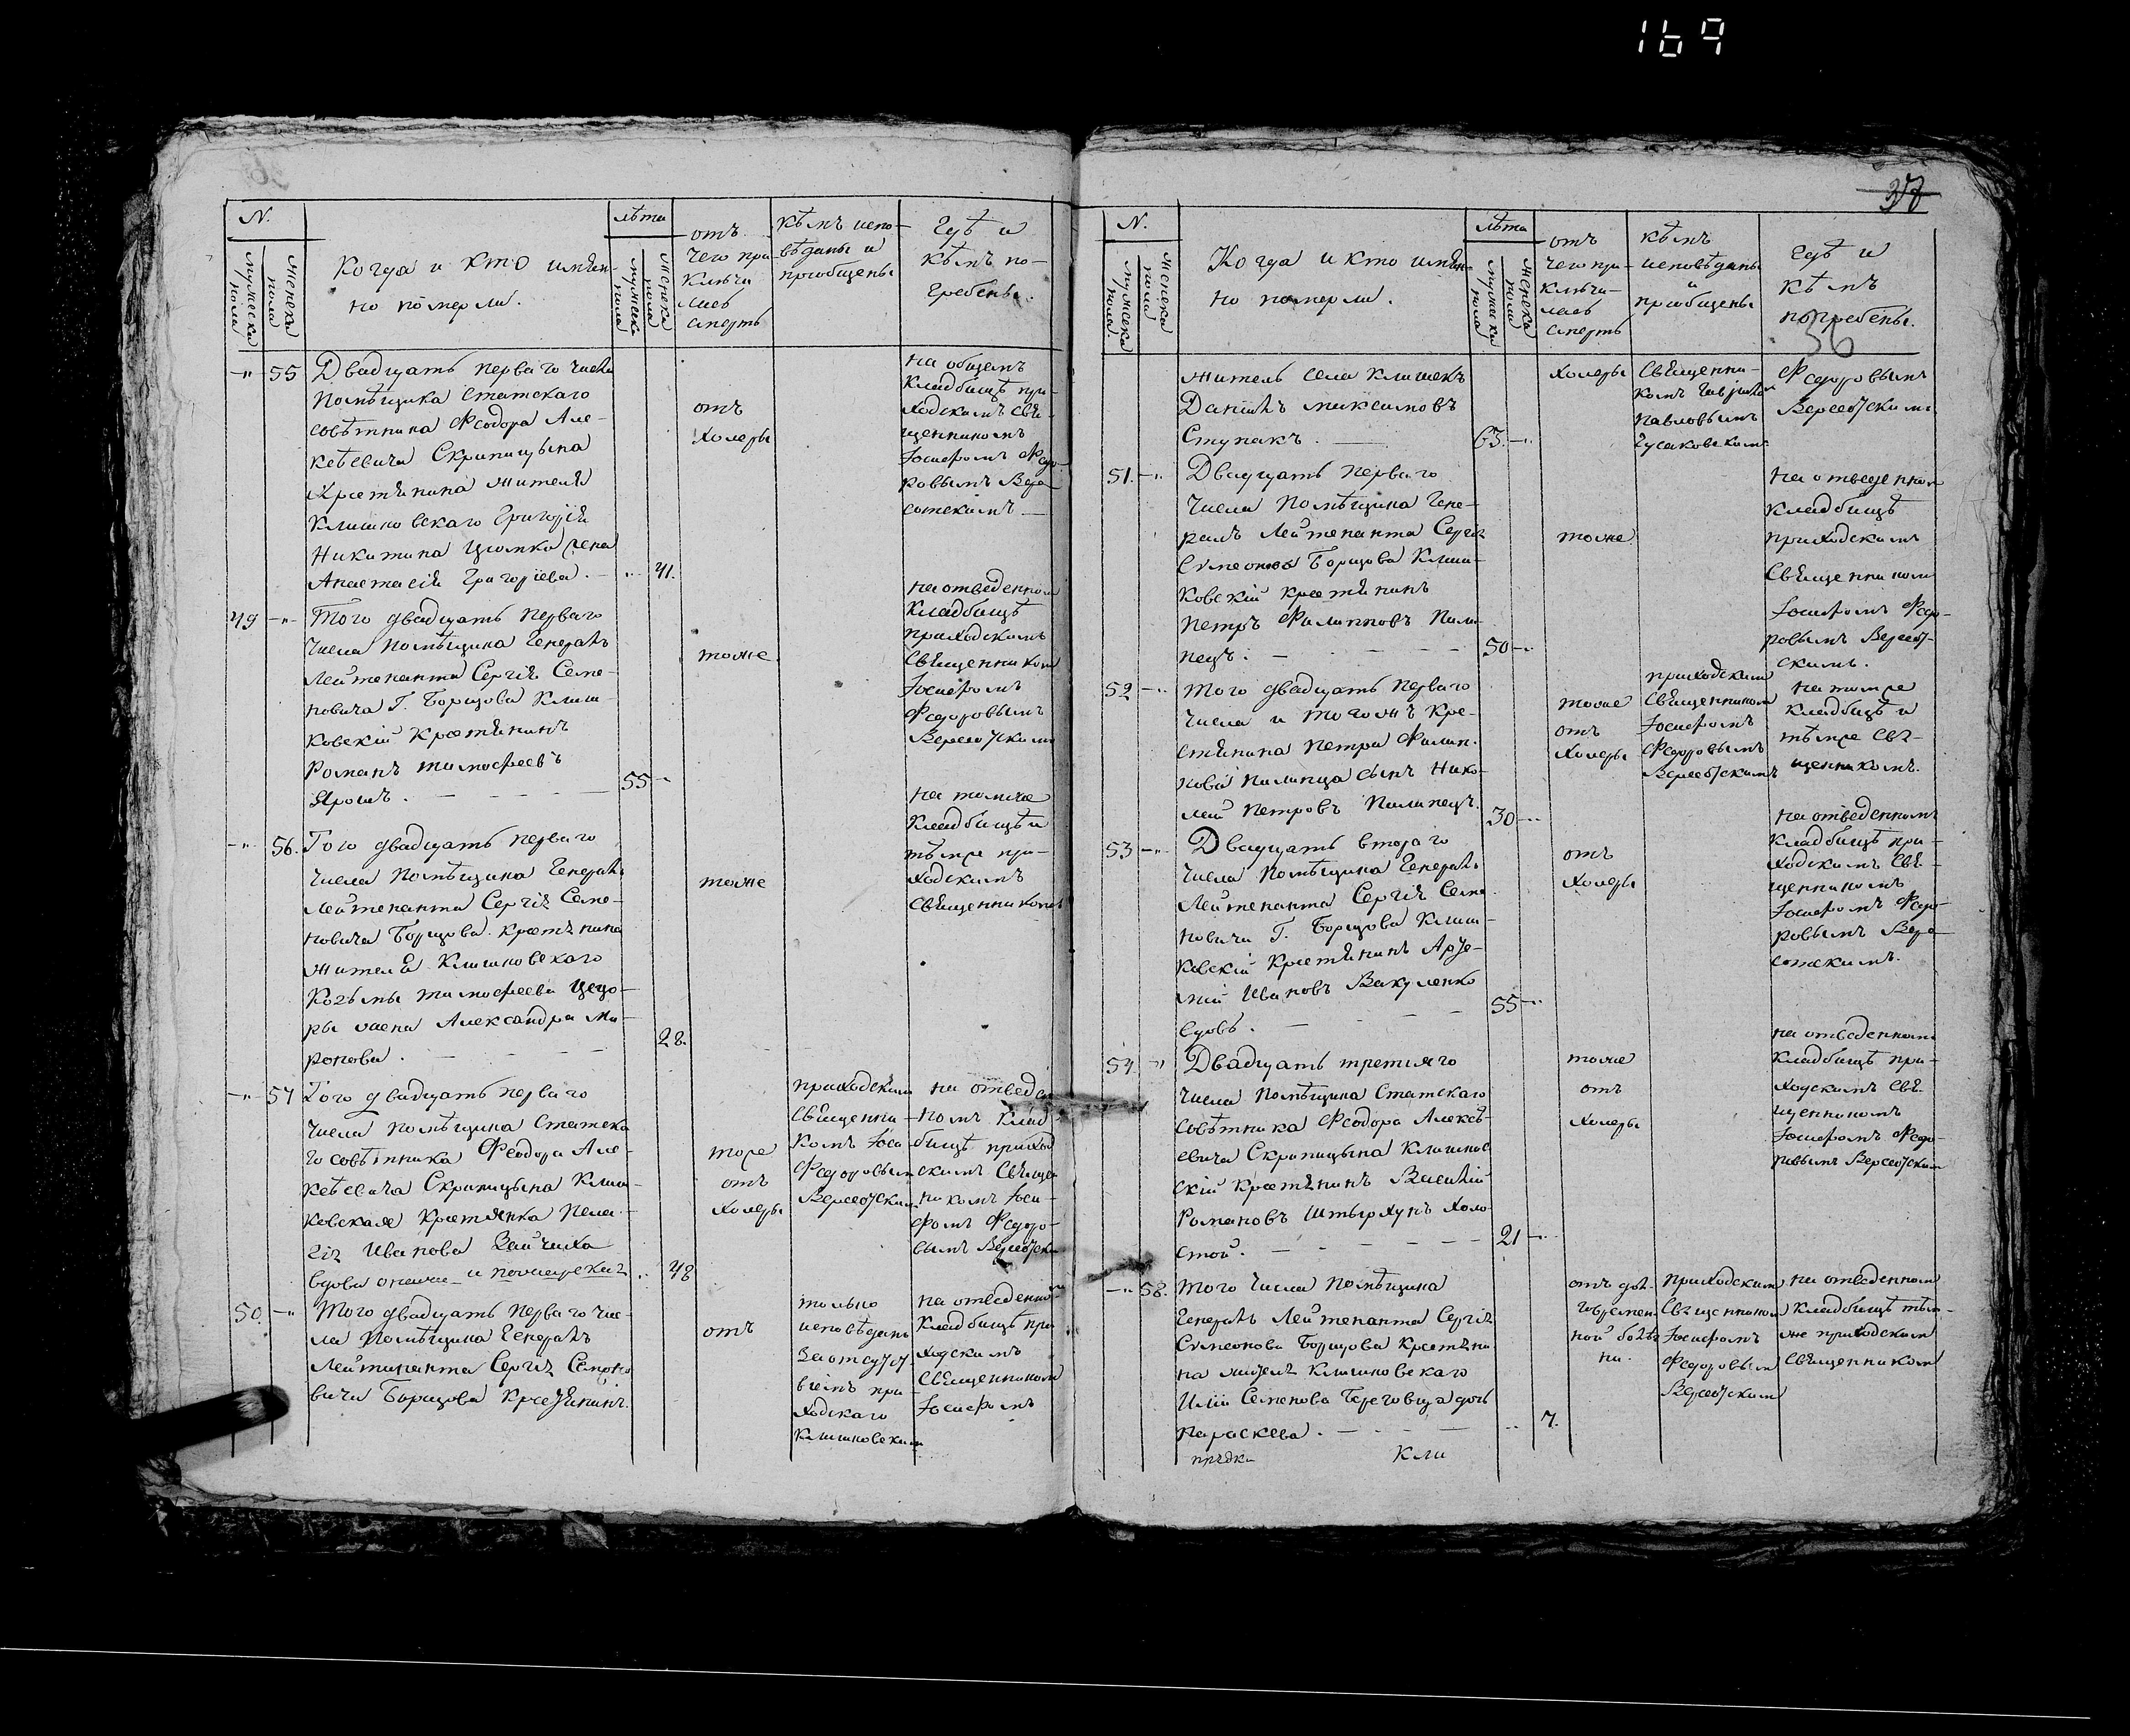 169
37
36
N.
мужеска пола
женска пола
Когда и кто имян-
но померли.
лѣта
мужеска пола
женска пола
отъ
чего при-
ключи
лась
смерть
кѣмъ испо-
вѣданы и
приобщены
Гдѣ и
кѣмъ по-
гребены.
-"- 55 Двадцать перваго числа
Помѣщика Статскаго
совѣтника Феодора Але-
кѣевича Скрипицына
Крестянина жителя
Клишковскаго Григорія
Никитина Цюпка жена
Анастасія Григоріева. - 41.
отъ
Холеры
на общемъ
Кладбищѣ при-
ходскимъ свя-
щенникомъ
Іосифомъ Федо-
ровымъ Вере
сотскимъ
49 -"- Того двадцать перваго
числа помѣщика Генералъ
Лейтенанта Сергія Семе-
новича Г. Борщова Клиш-
ковскій Крестянинъ
Романъ тимофеевъ
Ярошъ. - - - - 55
тоже
на отведенном
Кладбищѣ
приходскимъ
Священником
Іосифомъ
Федоровымъ
Вересотскимъ
-"- 56. Того двадцать перваго
числа Помѣщика Генералъ
Лейтенанта Сергія Семе-
новича Борщова крестянина
жителя Клишковскаго
Козьмы тимофеева Цецо-
ры жена Александра Ми-
ронова. - - - 28.
тоже
на томже
Кладбищѣ и
тѣмже при-
ходскимъ
Священником
-"- 57 Того двадцать перваго
числа помѣщика Статска
го совѣтника Феодора Але-
кѣевича Скрипицына Клиш-
ковская Крестянка Пела-
гія Иванова Зайчиха
вдова 48
тоже
отъ
Холеры
приходским
Священни-
комъ Іоси-
Федоровым
Вересотским
на отведен
номъ Клад
бищѣ приход
скимъ Священ
никомъ Іоси-
фомъ Федоро-
вымъ Вересотски
50. -"- Того двадцать перваго чис-
ла Помѣщика Генералъ
Лейтинанта Сергія Семено
вича Борщова Крестянинъ
отъ
только
исповѣданъ
За отсутст
віемъ при-
ходскаго
Клишковским
на отведенно
Кладбищѣ при
ходскимъ
Священником
Іосифомъ
N.
мужеска пола
женска пола
Когда и кто имян-
но померли.
лѣта
мужеска пола
женска пола
отъ
чего при-
ключи-
лась
смерть
кѣмъ
исповѣданы
и
приобщены
Гдѣ и
кѣмъ
погребены.
житель села Клишекъ
Даніилъ максимовъ
Ступакъ. 63.
Холеры
Священни-
комъ Гавріилом
Павловымъ
Гусаковским
Федоровымъ
Вересотскимъ
51. -"- Двадцать перваго
числа Помѣщика Гене-
ралъ Лейтенанта Сергія
Симеонова Борщова Клиш-
ковскій крестянинъ
Петръ Филипповъ Пили-
пецъ. - - - - 50
тоже
На отведенном
Кладбищѣ
приходскимъ
Священником
Іосифомъ Федо-
ровымъ Вересот-
скимъ.
52. -"- Того двадцать перваго
числа и тогожъ Кре-
стянина Петра Филип-
пова Пилипца сынъ Нико-
лай Петровъ Пилипецъ. 30
тоже
отъ
Холеры
приходским
Священником
Іосифомъ
Федоровымъ
Вересотскимъ
На томже
Кладбищѣ и
тѣмже Свя-
щенникомъ.
53 -"- Двадцать втораго
числа Помѣщика Генералъ
Лейтенанта Сергія Семе
новича Г. Борщова Клиш-
ковскій Крестянинъ Арте-
мій Ивановъ Вакуленко
вдовъ. - - - - 55
отъ
Холеры
На отведенномъ
Кладбищѣ при-
ходскимъ Свя-
щенникомъ
Іосифомъ Федо-
ровымъ Вере
сотскимъ.
54. -"- Двадцать третяго
числа помѣщика Статскаго
Совѣтника Феодора Алексѣ-
евича Скрипицына Клишков
скій крестянинъ Василій
Романовъ Штырхунъ Холо
стой. - - - - 21
тоже
отъ
Холеры
на отведенномъ
Кладбищѣ при-
ходскимъ Свя-
щенникомъ
Іосифомъ Федо-
ровымъ Вересотским
-"- 58. Того числа помѣщика
Генералъ Лейтенанта Сергія
Симеонова Борщова Крестяни
на жителя Клишковскаго
Иліи Семенова Береговца дочь
Параскева. - - - 7.
приходским
Священником
Іосифомъ
Федоровым
Вересотским
на отведенном
Кладбищѣ тѣм-
же приходским
Священником
Кли